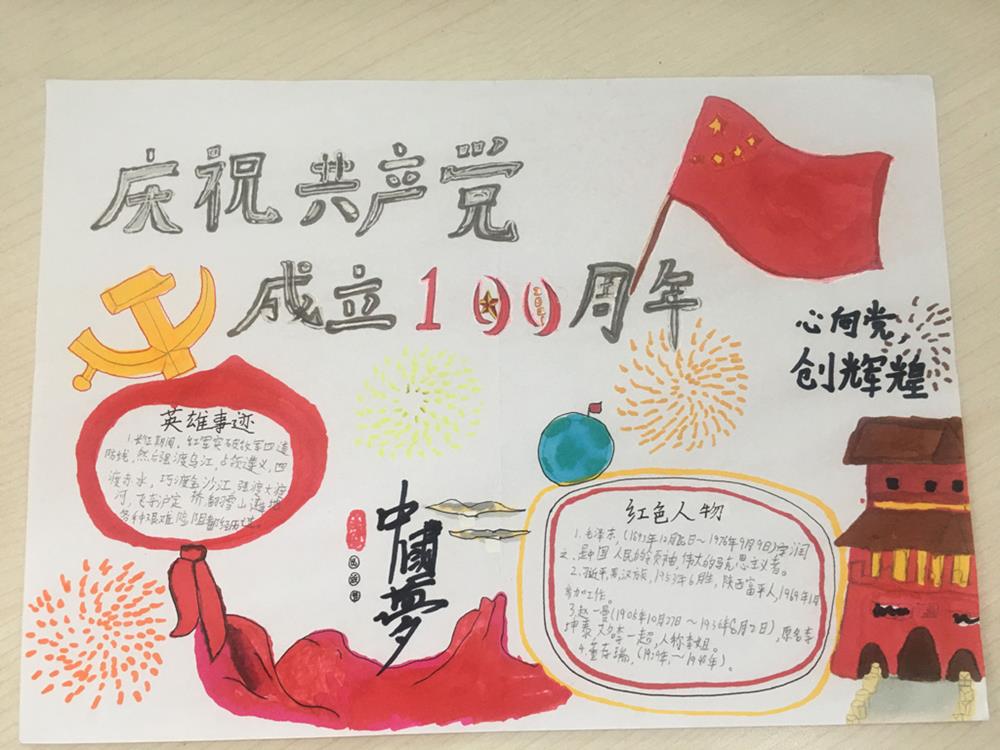 庆祝共产党
成立100周年
心向党,
创辉煌
英雄事迹
1.长征期间,红军突破敌军四道
防线,然后强渡乌江,占领遵义,四
渡赤水,巧渡金沙江,强渡大渡
河,飞夺泸定桥,翻雪山
各种艰难险阻
中國夢
红色人物
1.毛泽东,(1893年12月26日~1976年9月9日)字润
之,是中国人民的领袖,伟大的马克思主义者。
2.习近平,男,汉族,1953年6月生,陕西富平人,1969年1月
参加工作。
3.赵一曼(1905年10月27日~1936年8月2日),原名李
坤泰,一超,人称李姐。
4.董存瑞,(1929年~1948年)。